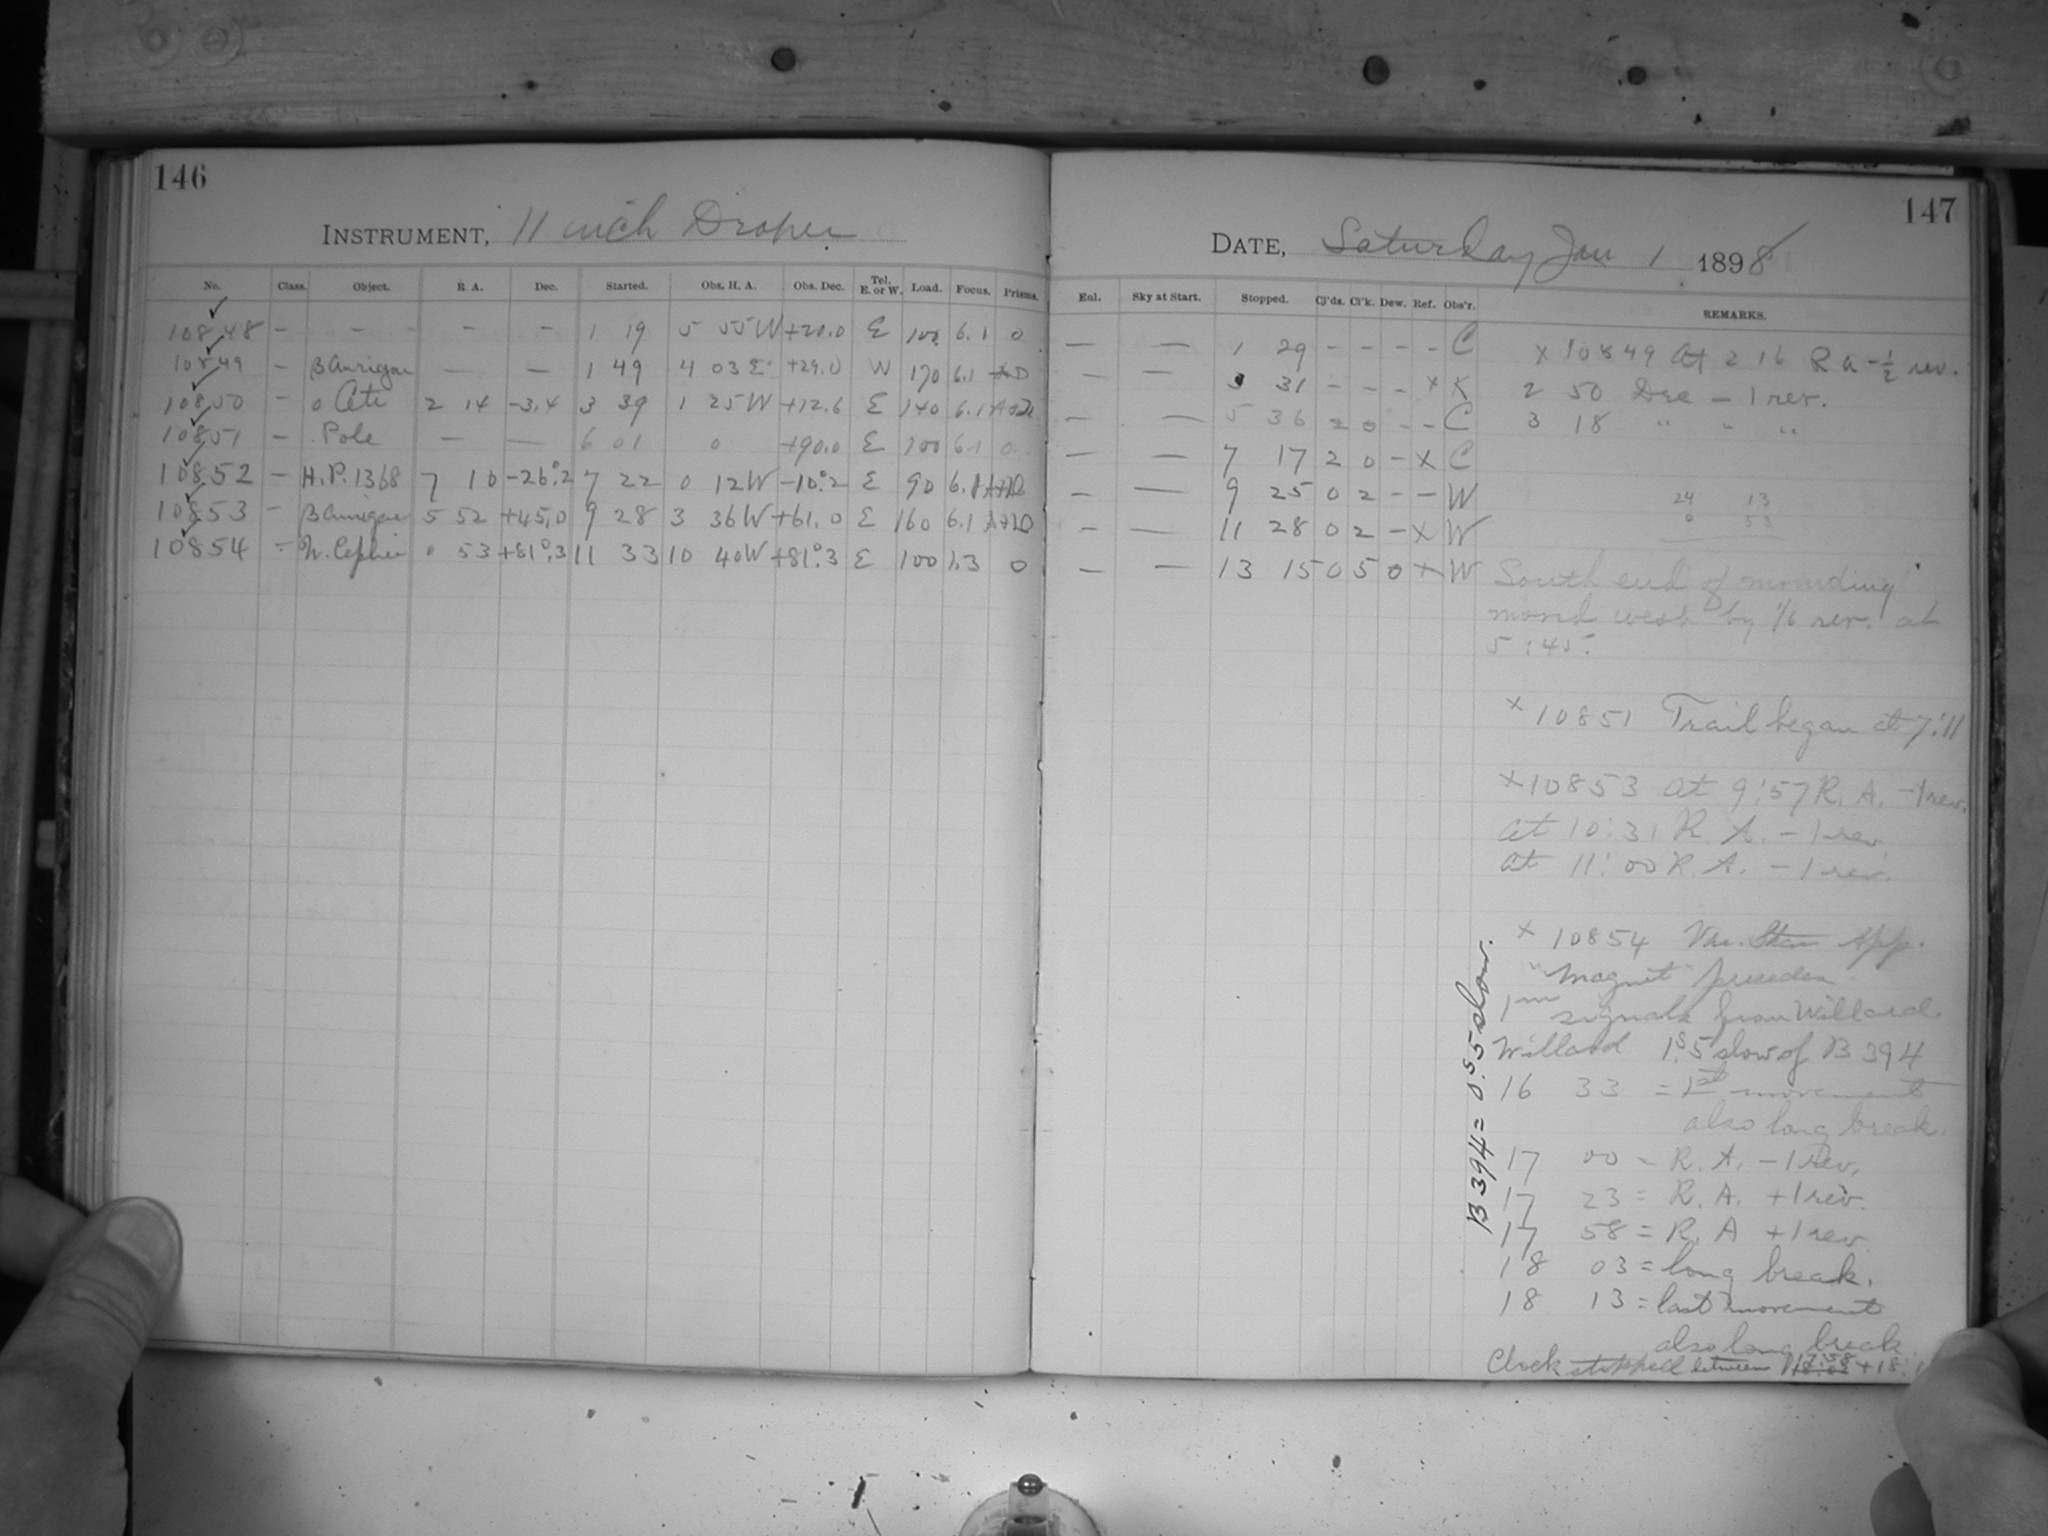 146
INSTRUMENT, 11 inch Draper
No. Class. Object. R. A. Dec. Started. Obs. H. A. Obs. Dec. Tel. E. or W. Load. Focus. Prisms.
10848 – – – – 1 19 5 55 W +20.0 E 100 6.1 0
10849 – β Aurigae — — 1 49 4 03 E +29.0 W 170 6.1
10850 – o Ceti 2 14 -3.4 3 39 1 25 W +12.6 E 140 6.1
10851 – Pole — — 6 01 0 +90.0 E 100 6.1 0
10852 – H.P. 1368 7 10 -26°.2 7 22 0 12 W -10°.2 E 90 6.1
10853 – β Aurigae 5 52 +45.0 9 28 3 36 W +61.0 E 160 6.1
10854 – Cephei 0 53 +81°.3 11 33 10 40 W +81°.3 E 100 1.3 0
147
DATE, Saturday Jan 1 1898
Enl. Sky at Start. Stopped. Cl'ds. Cl'k. Dew. Ref. Obs'r. REMARKS.
— — 1 29 – – – – C
— — 3 31 – – – x K
— — 5 36 2 0 – – C
— — 7 17 2 0 – x C
— — 9 25 0 2 – – W
— — 11 28 0 2 – x W
— — 13 15 0 5 0 x W
x 10849 At 2 16 R a – ½ rev.
2 50 Dec – 1 rev.
3 18 " " "
24 13
0 53
South end of mounding
moved west by 1/6 rev. at
5:45.
x 10851 Trail began at 7:11
x 10853 at 9:57 R. A. – 1 rev.
at 10:31 R. A. – 1 rev.
at 11:00 R. A. – 1 rev.
x 10854 Var. Star App.
"Magnet" precedes
1m signals from Willard.
Willard 1s.5 slow of B 394
16 33 = 1st movement
also long break.
17 00 = R. A. – 1 rev.
17 23 = R. A. + 1 rev.
17 58 = R. A + 1 rev.
18 03 = long break.
18 13 = last movement
also long break
Clock stopped between 17:58 + 18:
B 394 = 0s.5 slow.